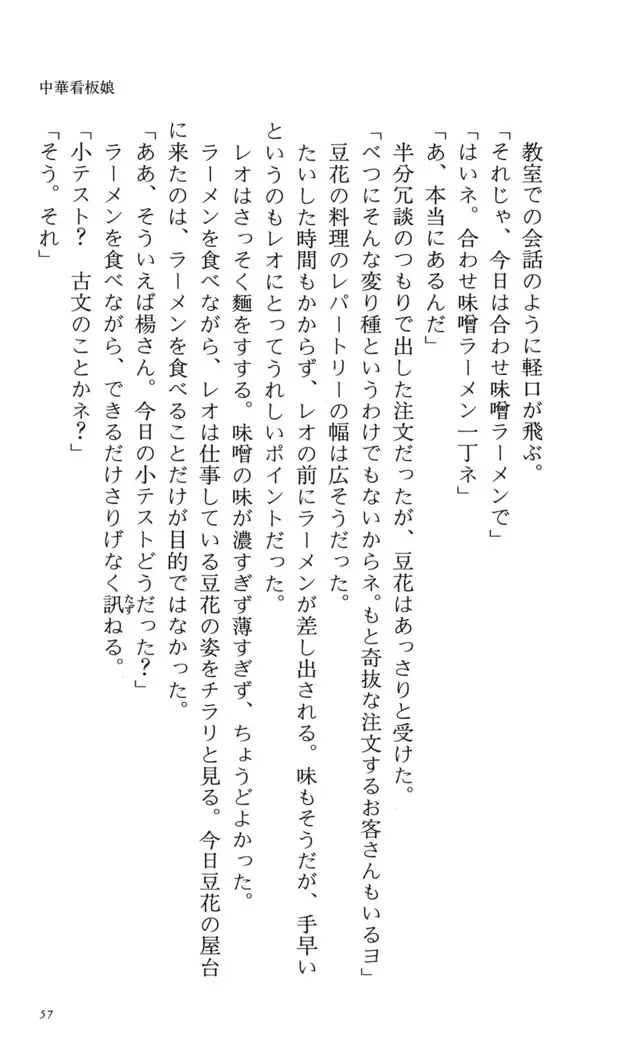 中華看板娘
教室での会話のように軽口が飛ぶ。
「それじゃ、今日は合わせ味噌ラーメンで」
「はいネ。合わせ味噌ラーメン一丁ネ」
「あ、本当にあるんだ」
半分冗談のつもりで出した注文だったが、豆花はあっさりと受けた。
「べつにそんな変り種というわけでもないからネ。もと奇抜な注文するお客さんもいるヨ」
豆花の料理のレパートリーの幅は広そうだった。
たいした時間もかからず、レオの前にラーメンが差し出される。味もそうだが、手早い
というのもレオにとってうれしいポイントだった。
レオはさっそく麺をすする。味噌の味が濃すぎず薄すぎず、ちょうどよかった。
ラーメンを食べながら、レオは仕事している豆花の姿をチラリと見る。今日豆花の屋台
に来たのは、ラーメンを食べることだけが目的ではなかった。
「ああ、そういえば楊さん。今日の小テストどうだった？」
ラーメンを食べながら、できるだけさりげなく訊たずねる。
「小テスト？　古文のことかネ？」
「そう。それ」
57